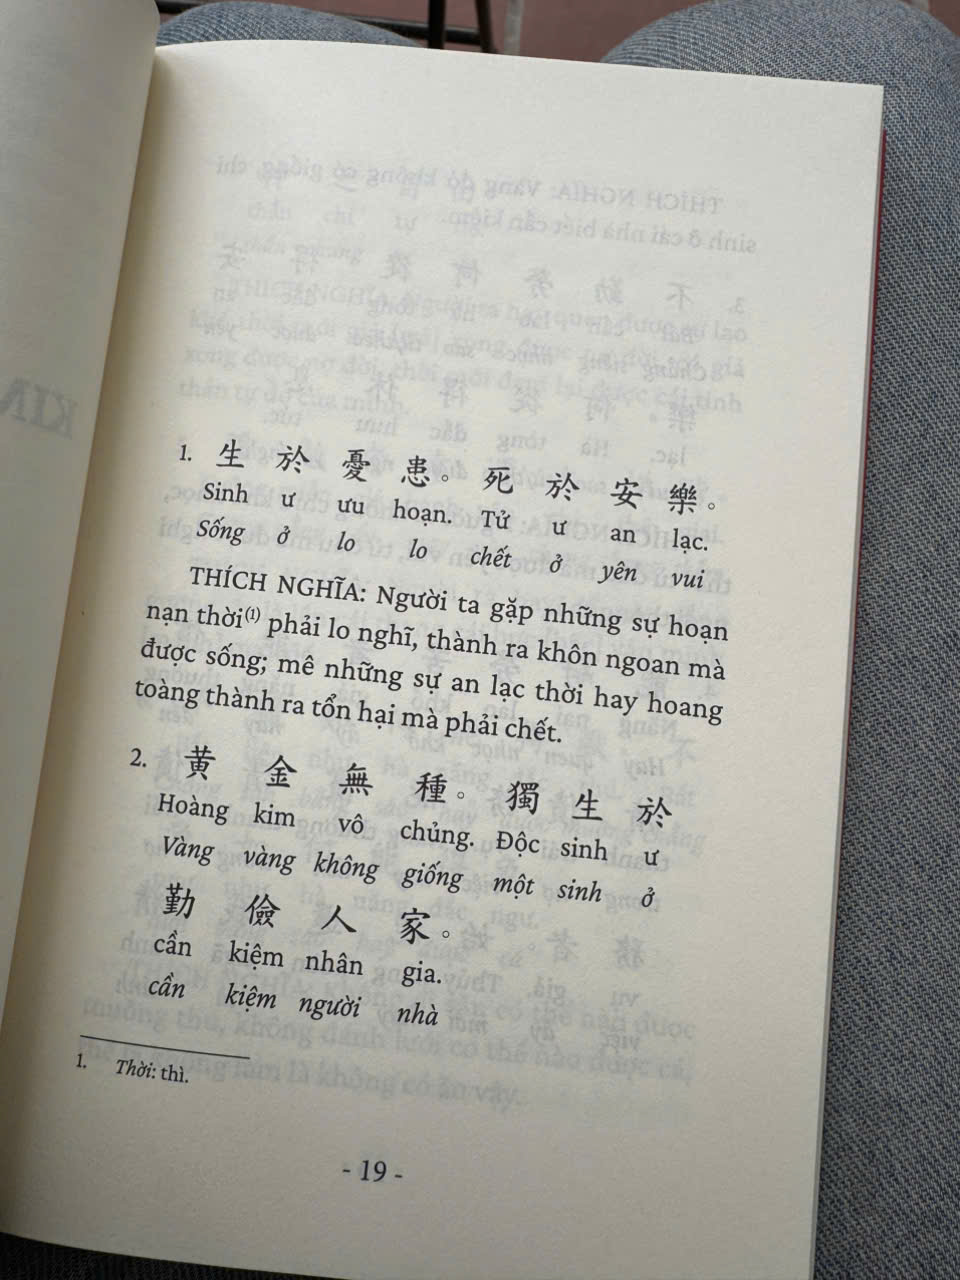 1. 生 於 憂 患。死 於 安 樂。
Sinh ư ưu hoạn. Tử ư an lạc.
Sống ở lo lo chết ở yên vui
THÍCH NGHĨA: Người ta gặp những sự hoạn
nạn thời(1) phải lo nghĩ, thành ra khôn ngoan mà
được sống; mê những sự an lạc thời hay hoang
toàng thành ra tổn hại mà phải chết.
2. 黄 金 無 種。獨 生 於
Hoàng kim vô chủng. Độc sinh ư
Vàng vàng không giống một sinh ở
勤 儉 人 家。
cần kiệm nhân gia.
cần kiệm người nhà
1. Thời: thì.
- 19 -